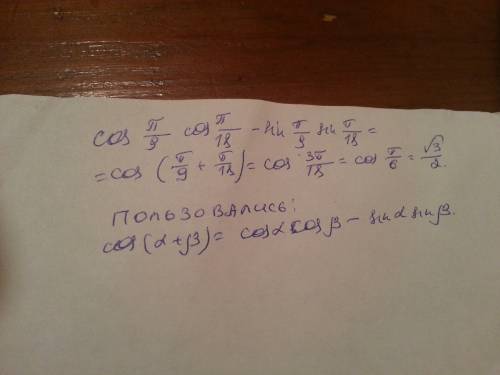 cos π/9 cos π/18 - sin π/9 sin π/18 =
= cos (π/9 + π/18) = cos 3π/18 = cos π/6 = √3/2.
ПОЛЬЗОВАЛИСЬ:
cos(α+β) = cosα cosβ - sinα sinβ.